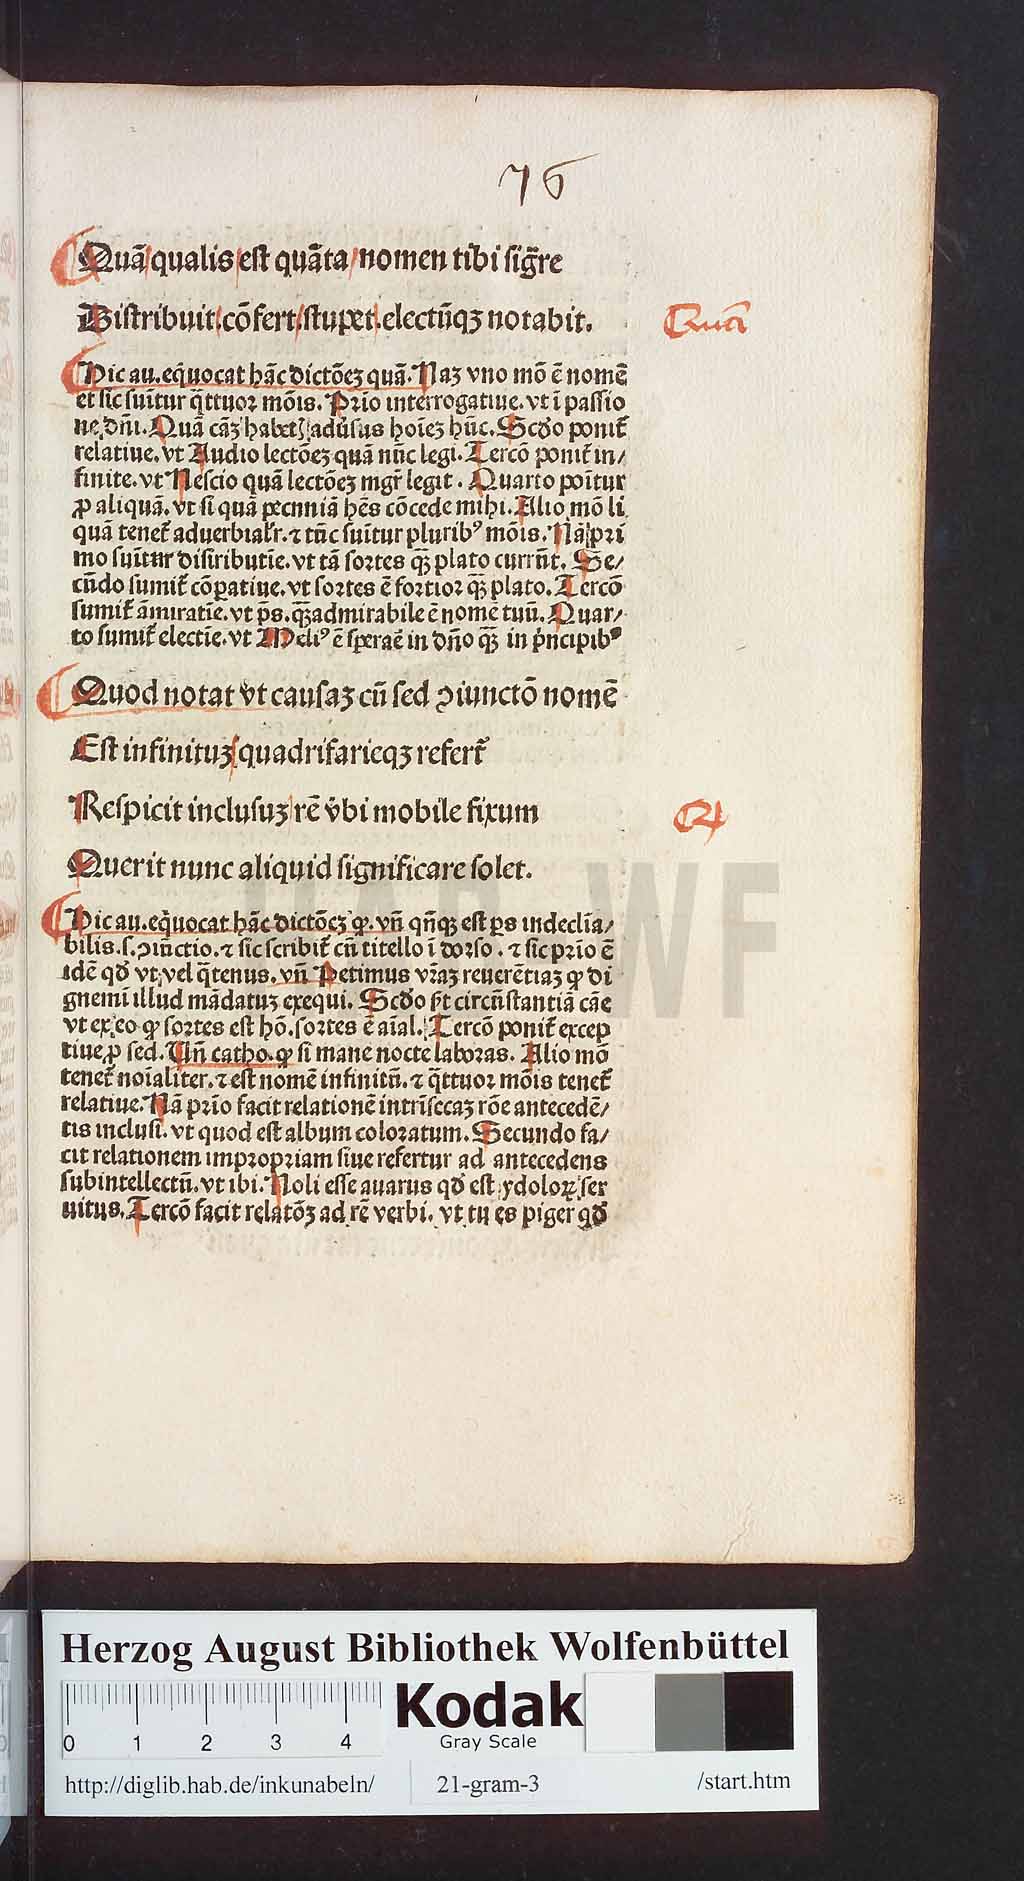 76
Quā qualis est quāta nomen tibi sigr̄e
Distribuit. cōfert. stupet. electūqꝫ notabit.
Quā
Dic au. eq̄uocat hāc dictōeꝫ quā. Naꝫ vno mō ē nomē
et sic sum̄tur q̄ttuor mōis. Prīo interrogatiue. vt ī passio
ne dn̄i. Quā cāꝫ habetꝭ aduẜus hoīeꝫ hūc. Scd̄o ponit᷑
relatiue. vt Audio lectōeꝫ quā nūc legi. Tercō ponit᷑ in/
finite. vt Nescio quā lectōeꝫ mgr̄ legit. Quarto poītur
ꝓ aliquā. vt si quā pecuniā hēs cōcede mihi. Alio mō li
quā tenet᷑ aduerbialr̄. ⁊ tūc sum̄tur pluribꝰ mōis. Nā pri
mo sum̄tur distributīe. vt tā sortes qꝫ̄ plato currūt. Se/
cūdo sumit᷑ cōꝑatiue. vt sortes ē fortior qꝫ̄ plato. Tercō
sumit᷑ āmiratīe. vt p̄s. qꝫ̄ admirabile ē nomē tuū. Quar/
to sumit᷑ electīe. vt Meliꝰ ē sꝑaē in dn̄o qꝫ̄ in pͥncipibꝰ
Quod notat vt causaꝫ cū sed ꝯiunctō nomē
Est infinituꝫ quadrifarieqꝫ refert᷑
Respicit inclusuꝫ rē v̄bi mobile fixum
Querit nunc aliquid significare solet.
Dic au. eq̄uocat hāc dictōeꝫ ꝙ. vn̄ qn̄qꝫ est ꝑs indeclīa/
bilis. s. ꝯiūctio. ⁊ sic scribit᷑ cū titello ī dorso. ⁊ sic prīo ē
idē qd̄ vt, vel q̄tenus. vn̄ Petimus vr̄aꝫ reuerētiaꝫ ꝙ di
gnemī illud mādatuꝫ exequi. Scd̄o ꝑt circūstantiā cāe
vt ex eo ꝙ sortes est hō. sortes ē aīal. Tercō ponit᷑ excep
tiue ꝓ sed. Un̄ catho. ꝙ si mane nocte laboras. Alio mō
tenet᷑ noīaliter. ⁊ est nomē infinitū. ⁊ q̄ttuor mōis tenet᷑
relatiue. Nā prīo facit relationē intrīsecaꝫ rōe antecedē/
tis inclusi. vt quod est album coloratum. Secundo fa/
cit relationem impropriam siue refertur ad antecedens
subintellectū. vt ibi. Noli esse auarus qd̄ est ydoloꝝ ser
uitus. Tercō facit relatōꝫ ad rē verbi. vt tu es piger qd̄
Herzog August Bibliothek Wolfenbüttel
0 1 2 3 4
Kodak
Gray Scale
http://diglib.hab.de/inkunabeln/ 21-gram-3 /start.htm
HAB WF